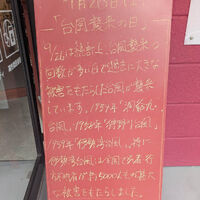 9月26日は
「台風襲来の日」
9/26は統計上、台風襲来の
回数が多い日で過去に大きな
被害をもたらした台風が襲来
しています。1954年「洞爺丸
台風」、1958年「狩野川台風」
1959年「伊勢湾台風」、特に
伊勢湾台風は全国で死者行
方不明者が約5000人と甚大
な被害をもたらしました。